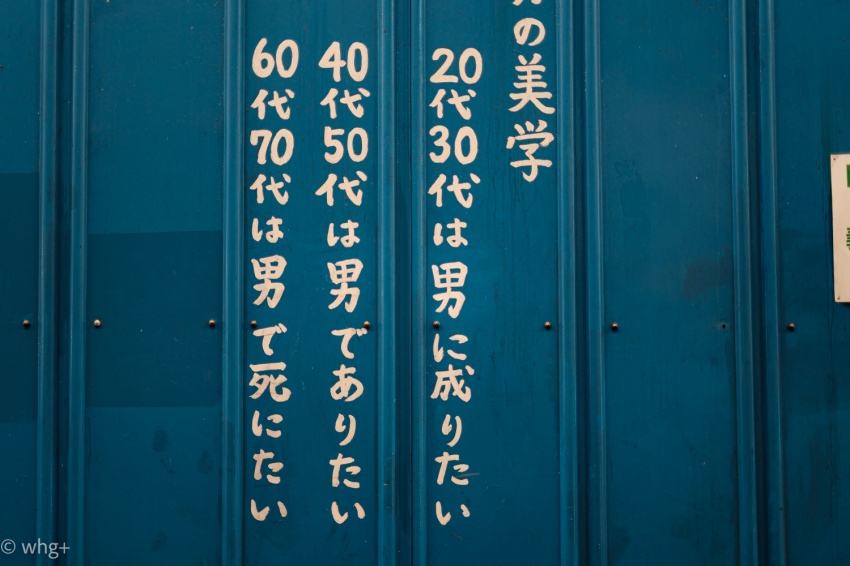 の美学
20代30代は男に成りたい
40代50代は男でありたい
60代70代は男で死にたい
© whg+